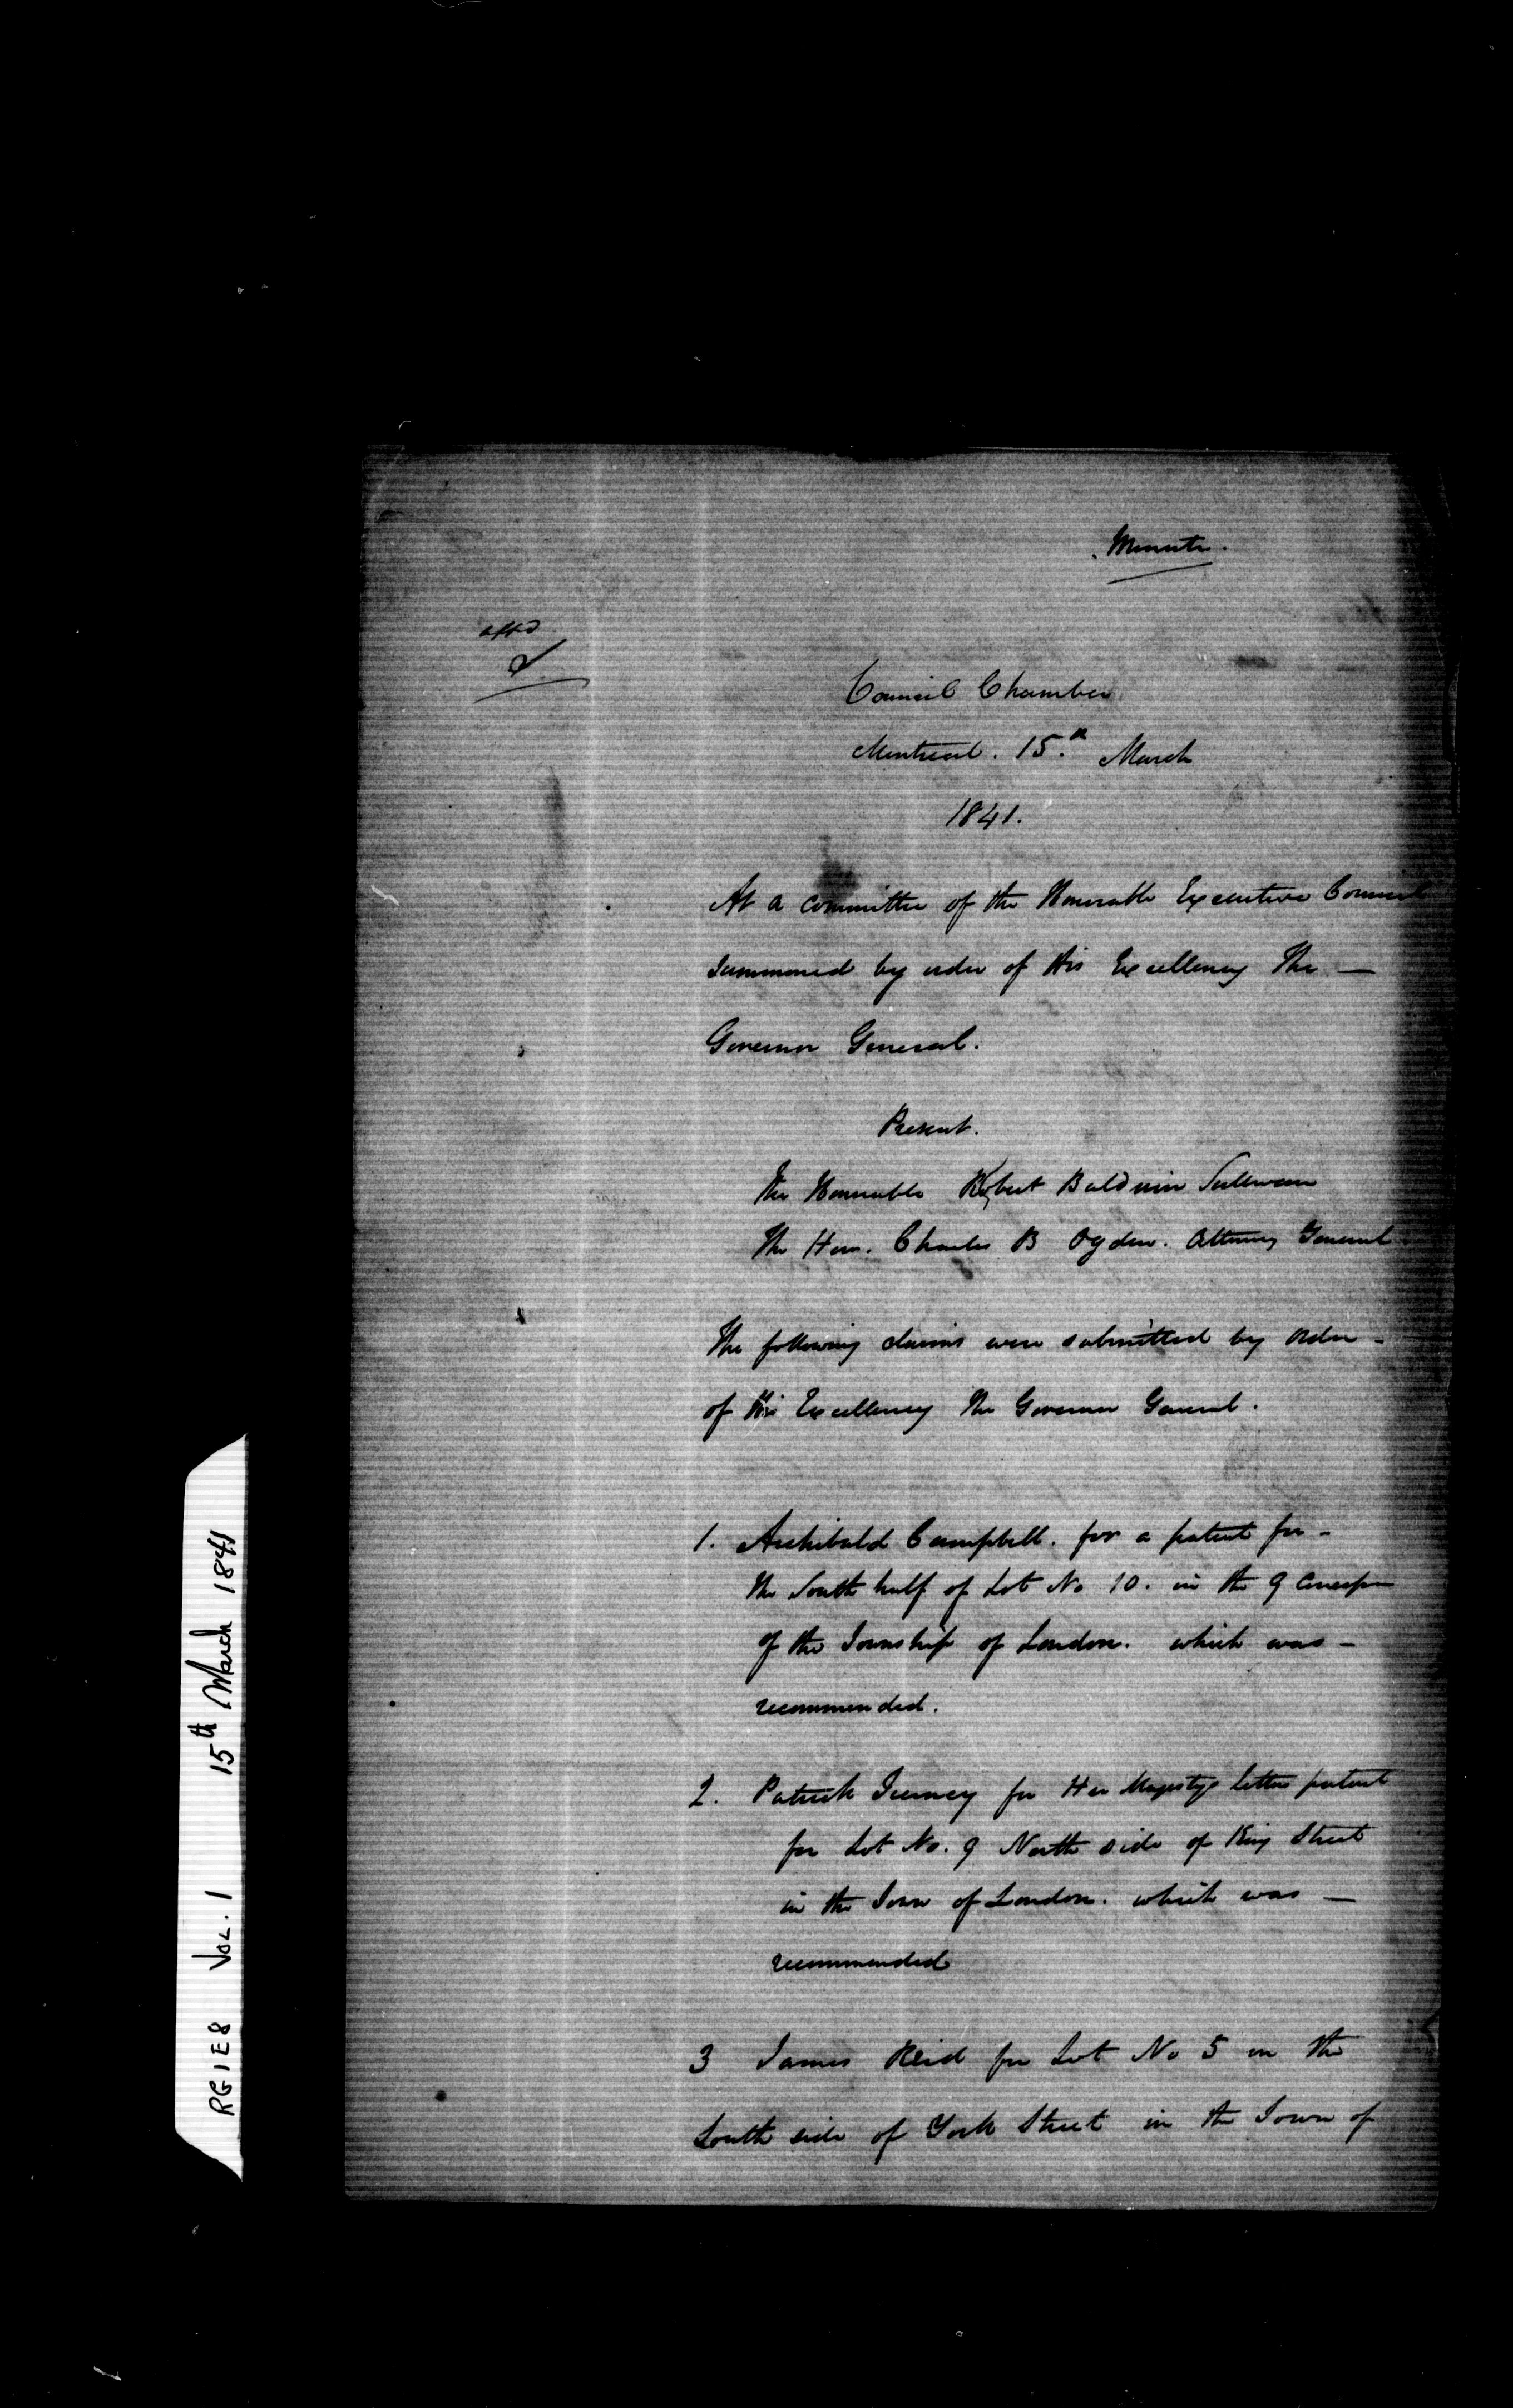 Minute.
Council Chamber
Montreal. 15.th March
1841.
At a committee of the Honorable Executive Council
summoned by order of His Excellency The —
Governor General.
Present.
The Honorable Robert Baldwin Sullivan
The Hon. Charles R Ogden. Attorney General
The following claims were submitted by order -
of His Excellency the Governor General.
1. Archibald Campbell. for a patent for -
the South half of Lot No 10. in the 9 Concession
of the Township of London. which was -
recommended.
2. Patrick Tierney for Her Majestys letters patent
for Lot No. 9 North side of King Street
in the Town of London. which was —
recommended
3 James Reid for Lot No 5 on the
South side of York Street in the Town of
RG1E8 Vol. 1 15th March 1841